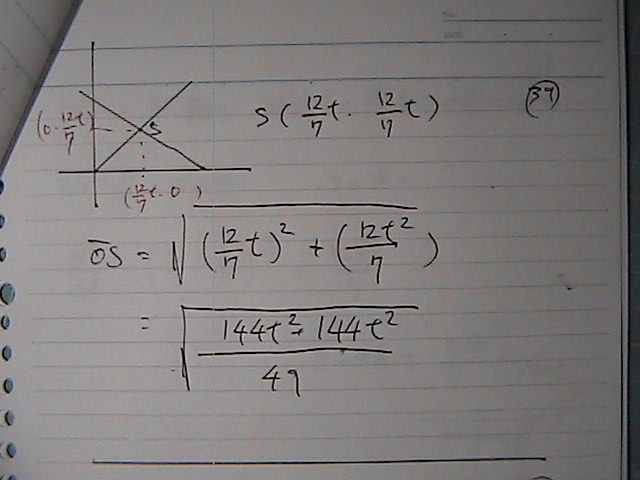 S(12/7 t · 12/7 t)
(39)
(0 · 12t/7)
S
(12/7 t · 0)
OS = √(12/7 t)² + (12t²/7)
= √144t² + 144t² / 49